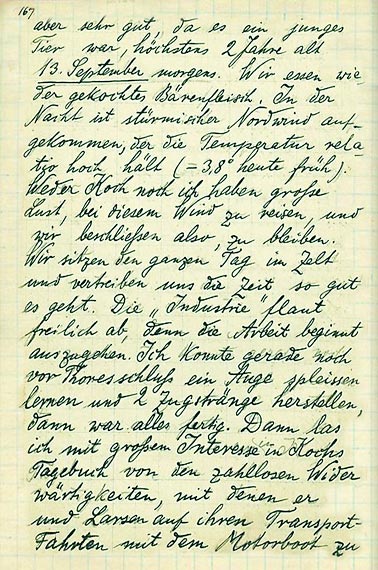 167
aber sehr gut, da es ein junges
Tier war, höchstens 2 Jahre alt
13. September morgens. Wir essen wie-
der gekochtes Bärenfleisch. In der
Nacht ist stürmischer Nordwind auf-
gekommen, der die Temperatur rela-
tiv hoch hält (-3,8° heute früh).
Weder Koch noch ich haben große
Lust, bei diesem Wind zu reisen, und
wir beschließen also, zu bleiben.
Wir sitzen den ganzen Tag im Zelt
und vertreiben uns die Zeit so gut
es geht. Die „Industrie" flaut
freilich ab, denn die Arbeit beginnt
auszugehen. Ich konnte gerade noch
vor Thoresschluß ein Auge spleissen
lernen und 2 Zugstränge herstellen,
dann war alles fertig. Dann las
ich mit großem Interesse in Kochs
Tagebuch von den zahllosen Wider
wärtigkeiten, mit denen er
und Larsen auf ihren Transport-
Fahrten mit dem Motorboot zu